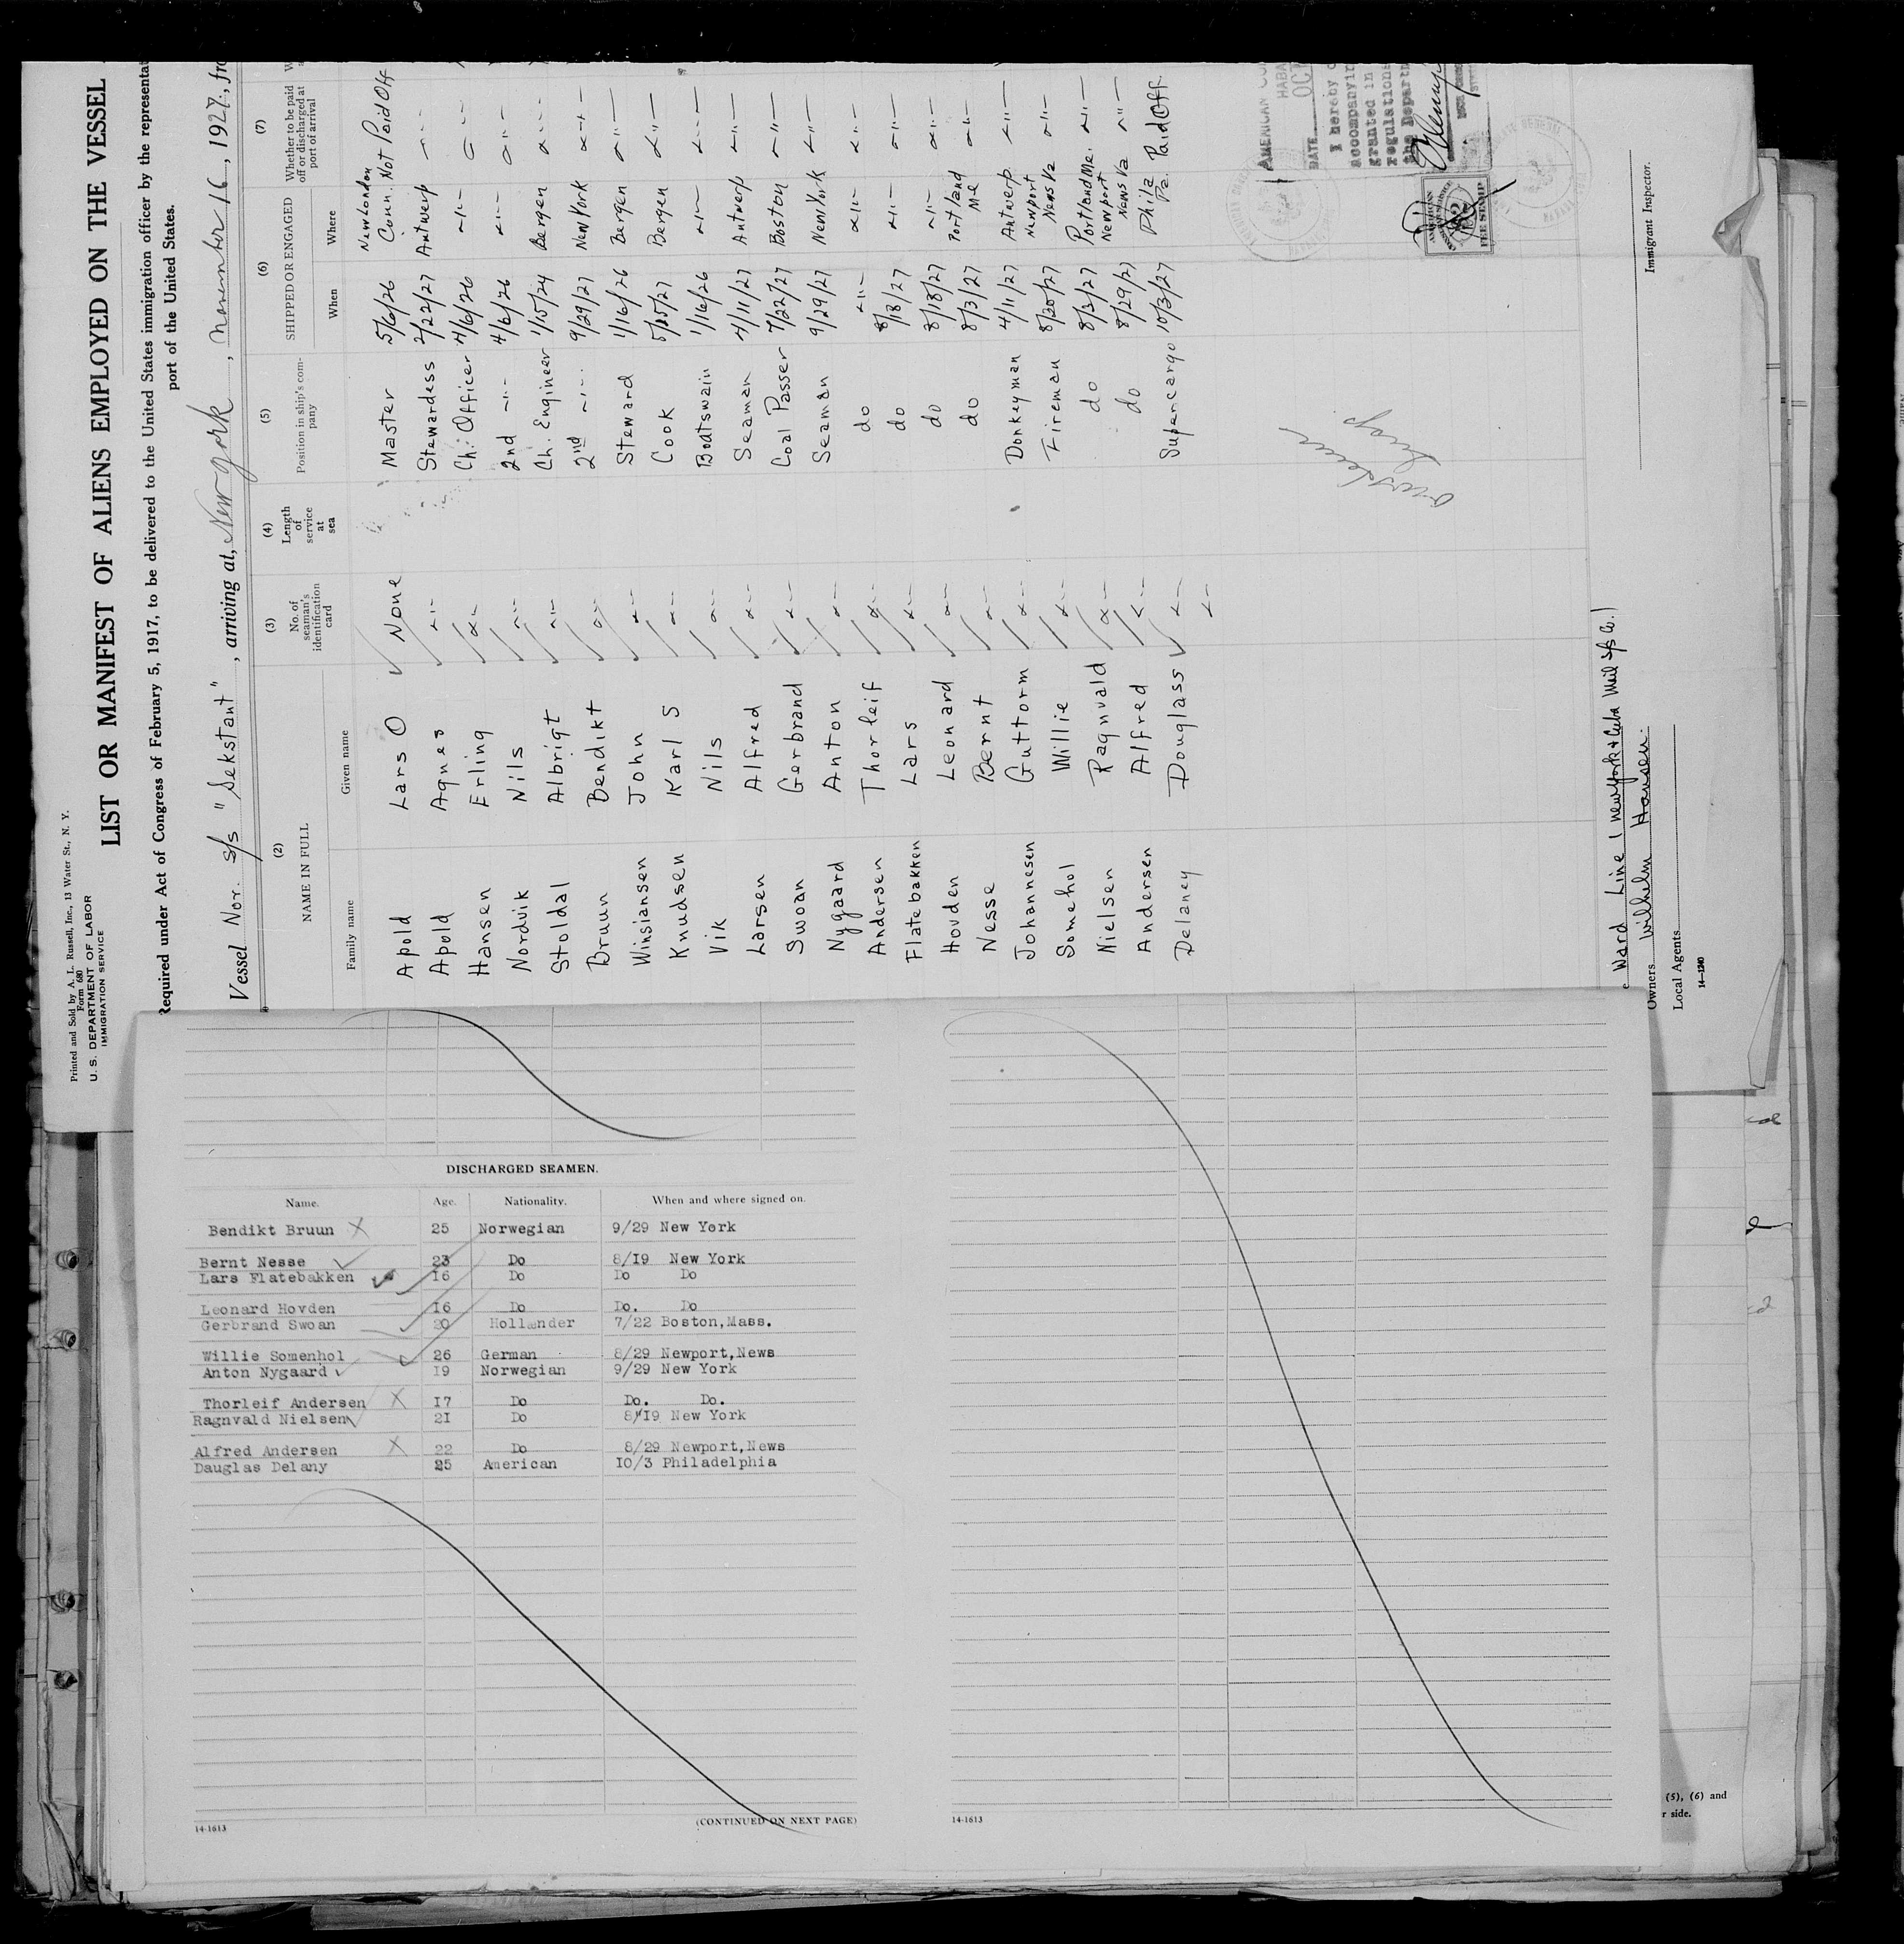 Printed and Sold by A. L. Russell, Inc., 13 Water St., N. Y.
Form 680
U. S. DEPARTMENT OF LABOR
IMMIGRATION SERVICE
LIST OR MANIFEST OF ALIENS EMPLOYED ON THE VESSEL
Required under Act of Congress of February 5, 1917, to be delivered to the United States immigration officer by the representat
port of the United States.
Vessel Nor. s/s "Sekstant", arriving at, New York, November 16, 1927, fro
(2) (3) (4) (5) (6) (7)
NAME IN FULL No. of seaman's identification card Length of service at sea Position in ship's company SHIPPED OR ENGAGED Whether to be paid off or discharged at port of arrival
Family name Given name When Where
Apold Lars O None Master 5/6/26 New London Conn. Not Paid Off
Apold Agnes -"- Stewardess 2/22/27 Antwerp -"-
Hansen Erling -"- Ch. Officer 4/6/26 -"- -"-
Nordvik Nils -"- 2nd -"- 4/6/26 -"- -"-
Stoldal Albrigt -"- Ch. Engineer 1/15/24 Bergen -"-
Bruun Bendikt -"- 2nd -"- 9/29/27 New York -"-
Winsiansen John -"- Steward 1/16/26 Bergen -"-
Knudsen Karl S -"- Cook 5/25/27 Bergen -"-
Vik Nils -"- Boatswain 1/16/26 -"- -"-
Larsen Alfred -"- Seaman 4/11/27 Antwerp -"-
Swoan Gerbrand -"- Coal Passer 7/22/27 Boston -"-
Nygaard Anton -"- Seaman 9/29/27 New York -"-
Andersen Thorleif -"- do -"- -"- -"-
Flatebakken Lars -"- do 8/18/27 -"- -"-
Hovden Leonard -"- do 8/18/27 -"- -"-
Nesse Bernt -"- do 8/3/27 Portland Me -"-
Johannesen Guttorm -"- Donkeyman 4/11/27 Antwerp -"-
Somehol Willie -"- Fireman 8/20/27 Newport News Va -"-
Nielsen Ragnvald -"- do 8/3/27 Portland Me. -"-
Andersen Alfred -"- do 8/29/27 Newport News Va -"-
Delaney Douglass -"- Supercargo 10/3/27 Phila Pa. Paid Off.
-"-
AMERICAN CO
HABA
DATE OCT
I hereby c
accompanyin
granted in
regulations
the Departm
FEE STAMP
Immigrant Inspector.
Ward Line (New York & Cuba Mail S/S Co.)
Owners Wilhelm Hansen.
Local Agents
14—1240
DISCHARGED SEAMEN.
Name. Age. Nationality. When and where signed on.
Bendikt Bruun X 25 Norwegian 9/29 New York
Bernt Nesse 23 Do 8/19 New York
Lars Flatebakken 16 Do Do Do
Leonard Hovden 16 Do Do. Do
Gerbrand Swoan 20 Hollander 7/22 Boston,Mass.
Willie Somenhol 26 German 8/29 Newport,News
Anton Nygaard 19 Norwegian 9/29 New York
Thorleif Andersen X 17 Do Do. Do.
Ragnvald Nielsen 21 Do 8/19 New York
Alfred Andersen X 22 Do 8/29 Newport,News
Dauglas Delany 25 American 10/3 Philadelphia
14-1613
(CONTINUED ON NEXT PAGE)
14-1613
(5), (6) and
r side.